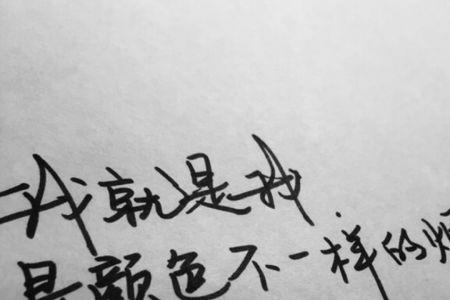 我就是我
是颜色不一样的